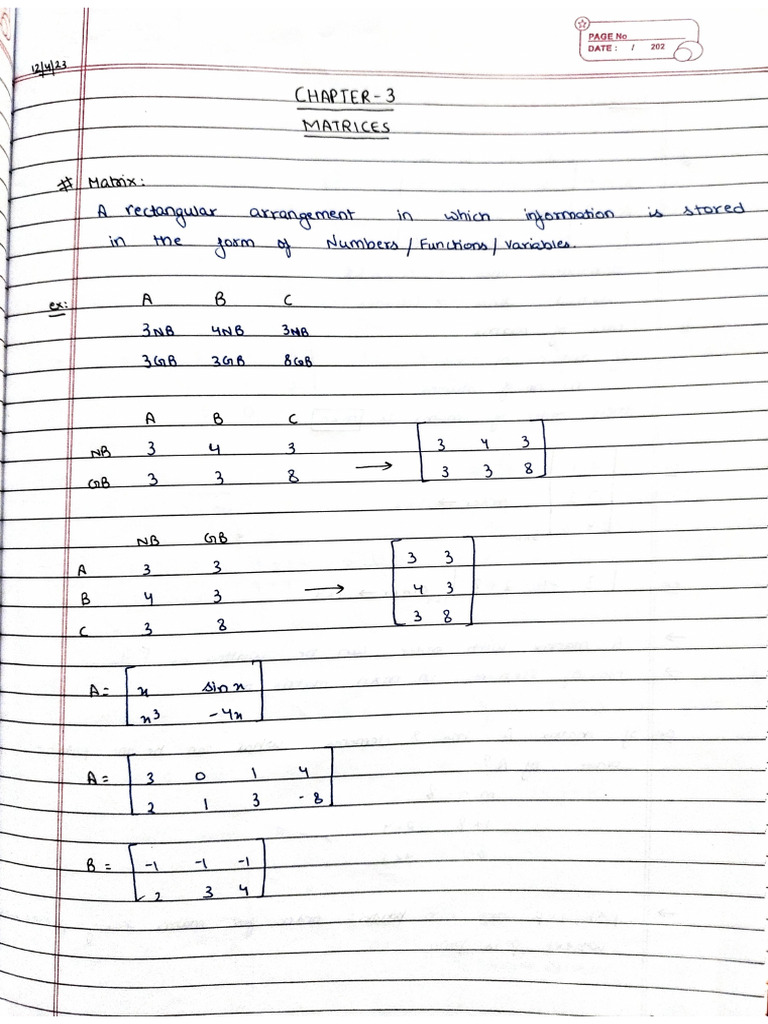 PAGE No
DATE : / 202
12/4/23
CHAPTER-3
MATRICES
# Matrix:
A rectangular arrangement in which information is stored
in the form of Numbers/Functions/Variables.
ex: A B C
3NB 4NB 3NB
3GB 3GB 8GB
A B C
NB 3 4 3 → 3 4 3
GB 3 3 8 3 3 8
NB GB
A 3 3 3 3
B 4 3 → 4 3
C 3 8 3 8
A= x sinx
x³ -4x
A= 3 0 1 4
2 1 3 -8
B= -1 -1 -1
2 3 4